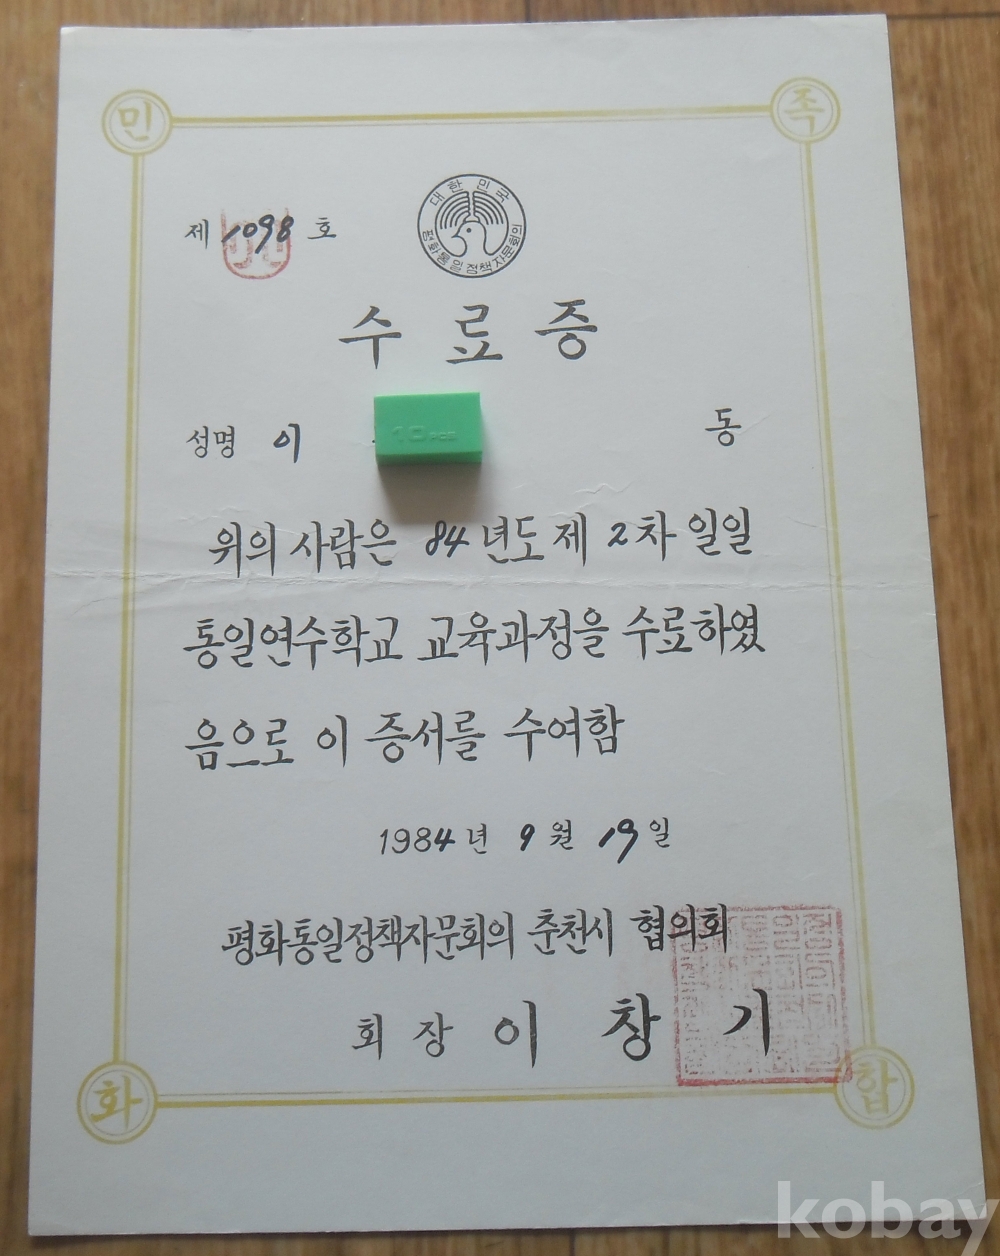 민 족
대한민국
평화통일정책자문회의
제 1098 호
수료증
성명 이 동
10 PCS
위의 사람은 84년도 제 2차 일일
통일연수학교 교육과정을 수료하였
음으로 이 증서를 수여함
1984년 9월 19일
평화통일정책자문회의 춘천시 협의회
회장 이창기
화 합
kobay